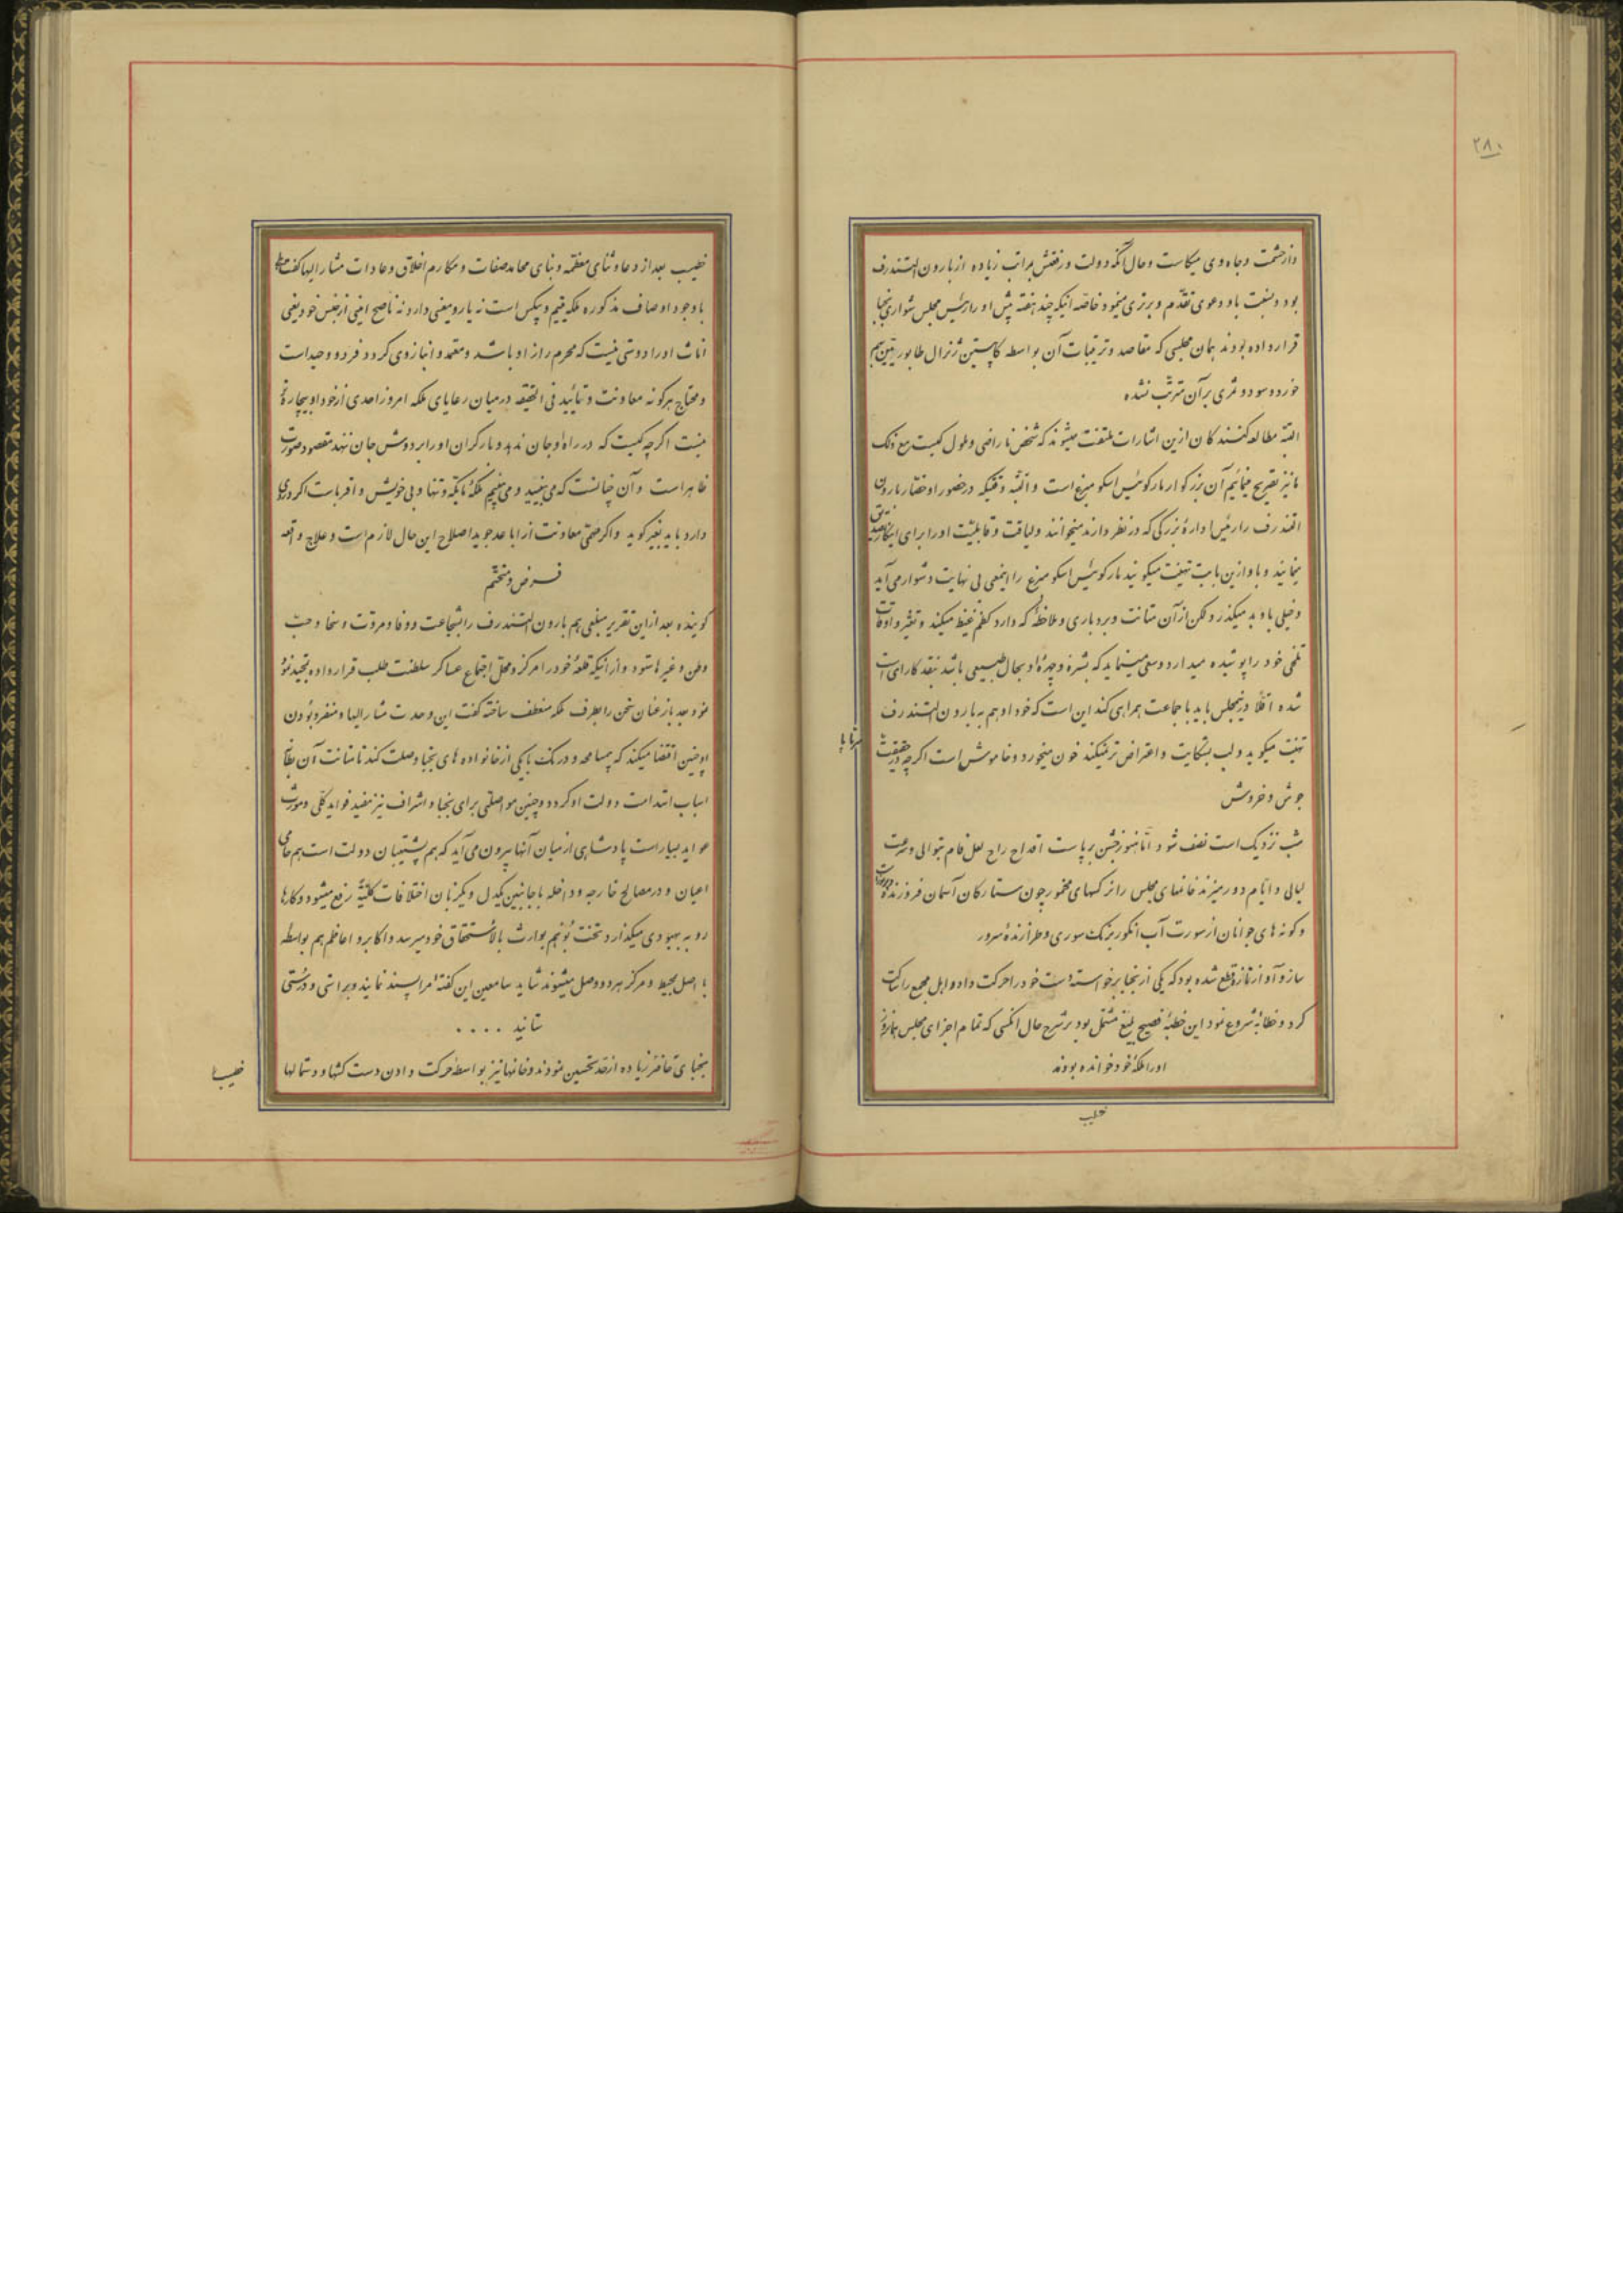 ۲۸۰
و از حشمت و جاه وی میکاست و حال آنکه دولت و رفعتش بمراتب زیاده از بارون التندرف
بود و نسبت باو دعوی تقدم و برتری مینمود خاصه اینکه چند هفته پیش او را رئیس مجلس شورای نجبا
قرار داده بودند همان مجلسی که مقاصد و ترتیبات آن بواسطه کاپیتن ژنرال طابور بهم
خورد و سود و ثمری بر آن مترتب نشده
البته مطالعه کنندگان ازین اشارات ملتفت میشوند که شخص ناراضی و ملول کیست مع ذلک
ما نیز تصریح مینمائیم آن بزرگوار مارکوئیس اسکو مبرغ است و البته وقتیکه در حضور او حضار بارون
التندرف را رئیس ادارهٔ بزرگی که در نظر دارند میخوانند و لیاقت و قابلیت او را برای اینکار تصدیق
مینمایند و باو ازین بابت تهنیت میگویند مارکوئیس اسکو مبرغ را اینمعنی بی نهایت دشوار می آید
و خیلی باو بد میگذرد ولکن از آن متانت و بردباری و ملاحظهٔ که دارد کظم غیظ میکند و تغیر و اوقات
تلخی خود را پوشیده میدارد و سعی مینماید که بشره و چهرهٔ او بحال طبیعی باشد بقدر کارای است
شده اقلا در مجلس باید با جماعت همراهی کند این است که خود او هم به بارون التندرف
تهنیت میگوید و لب بشکایت و اعتراض تر نمیکند خون میخورد و خاموش است اگرچه در حقیقت سرتاپا
جوش و خروش
شب نزدیک است نصف شود اما هنوز جشن برپاست اقداح راح لعل فام بتوالی و سرعت
لیالی و ایام دور میزند خانمهای مجلس را نرگسهای مخمور چون ستارگان آسمان فروزنده
و گونه های جوانان از سورت آب انگور برنگ سوری و طرازندهٔ سرور
ساز و آواز تازه قطع شده بود که یکی از نجبا برخواسته دست خود را حرکت داد و اهل مجمع را ساکت
کرد و خطابه شروع نمود این خطبهٔ فصیح بلیغ مشتمل بود بر شرح حال آنکسی که تمام اجزای مجلس همانروز
او را ملکهٔ خود خوانده بودند
خطیب
خطیب بعد از دعا و ثنای معظمه و بنای محامد صفات و مکارم اخلاق و عادات مشارالیها گفت
با وجود اوصاف مذکوره ملکه یتیم و بیکس است نه یار و معینی دارد نه ناصح امینی از جنس خود یعنی
اناث او را دوستی نیست که محرم راز او باشد و معتمد و انباز وی گردد فرد و وحید است
و محتاج هرگونه معاونت و تأیید فی الحقیقه در میان رعایای ملکه امروز احدی از خود او بیچاره تر
نیست اگرچه کیست که در راه او جان ندهد و بار گران او را بر دوش جان ننهد مقصود صورت
ظاهر است و آن چنانست که می بینید و می بینیم ملکهٔ ما یکه و تنها و بی خویش و اقرباست اگر دردی
دارد باید بغیر گوید و اگر معاونت از اباعد جوید اصلاح این حال لازم است و علاج واقعه
فرض و متحتم
گوینده بعد از این تقریر مبلغی هم بارون التندرف را بشجاعت و وفا و مروت و سخا و حب
وطن و غیرها ستود و از اینکه قلعهٔ خود را مرکز و محل اجتماع عساکر سلطنت طلب قرار داده تمجید نمود
خود بعد باز عنان سخن را بطرف ملکه منعطف ساخته گفت این وحدت مشارالیها و منفرد بودن
او چنین اقتضا میکند که بی مسامحه و درنگ با یکی از خانواده های نجبا وصلت کند تا متانت آن نظام
اسباب استدامت دولت او گردد و چنین مواصلتی برای نجبا و اشراف نیز مفید فواید کلی و مورث
عواید بسیار است پادشاهی از میان آنها بیرون می آید که هم پشتیبان دولت است هم حامی
اعیان و در مصالح خارجه و داخله با جانبین یکدل و یکزبان اختلافات کلیةً رفع میشود و کارها
رو به بهبودی میگذارد تخت بوبهم بوارث بالاستحقاق خود میرسد و اکابر و اعاظم هم بواسطه
با اصل محیط و مرکز هر دو وصل میشوند شاید سامعین این گفتهٔ مرا پسند نمایند و براستی و درستی
ستایند ....
نجبای حاضر زیاده از حد تحسین نمودند و خانمها نیز بواسطه حرکت دادن دست کشها و دستمالها
خطیب را